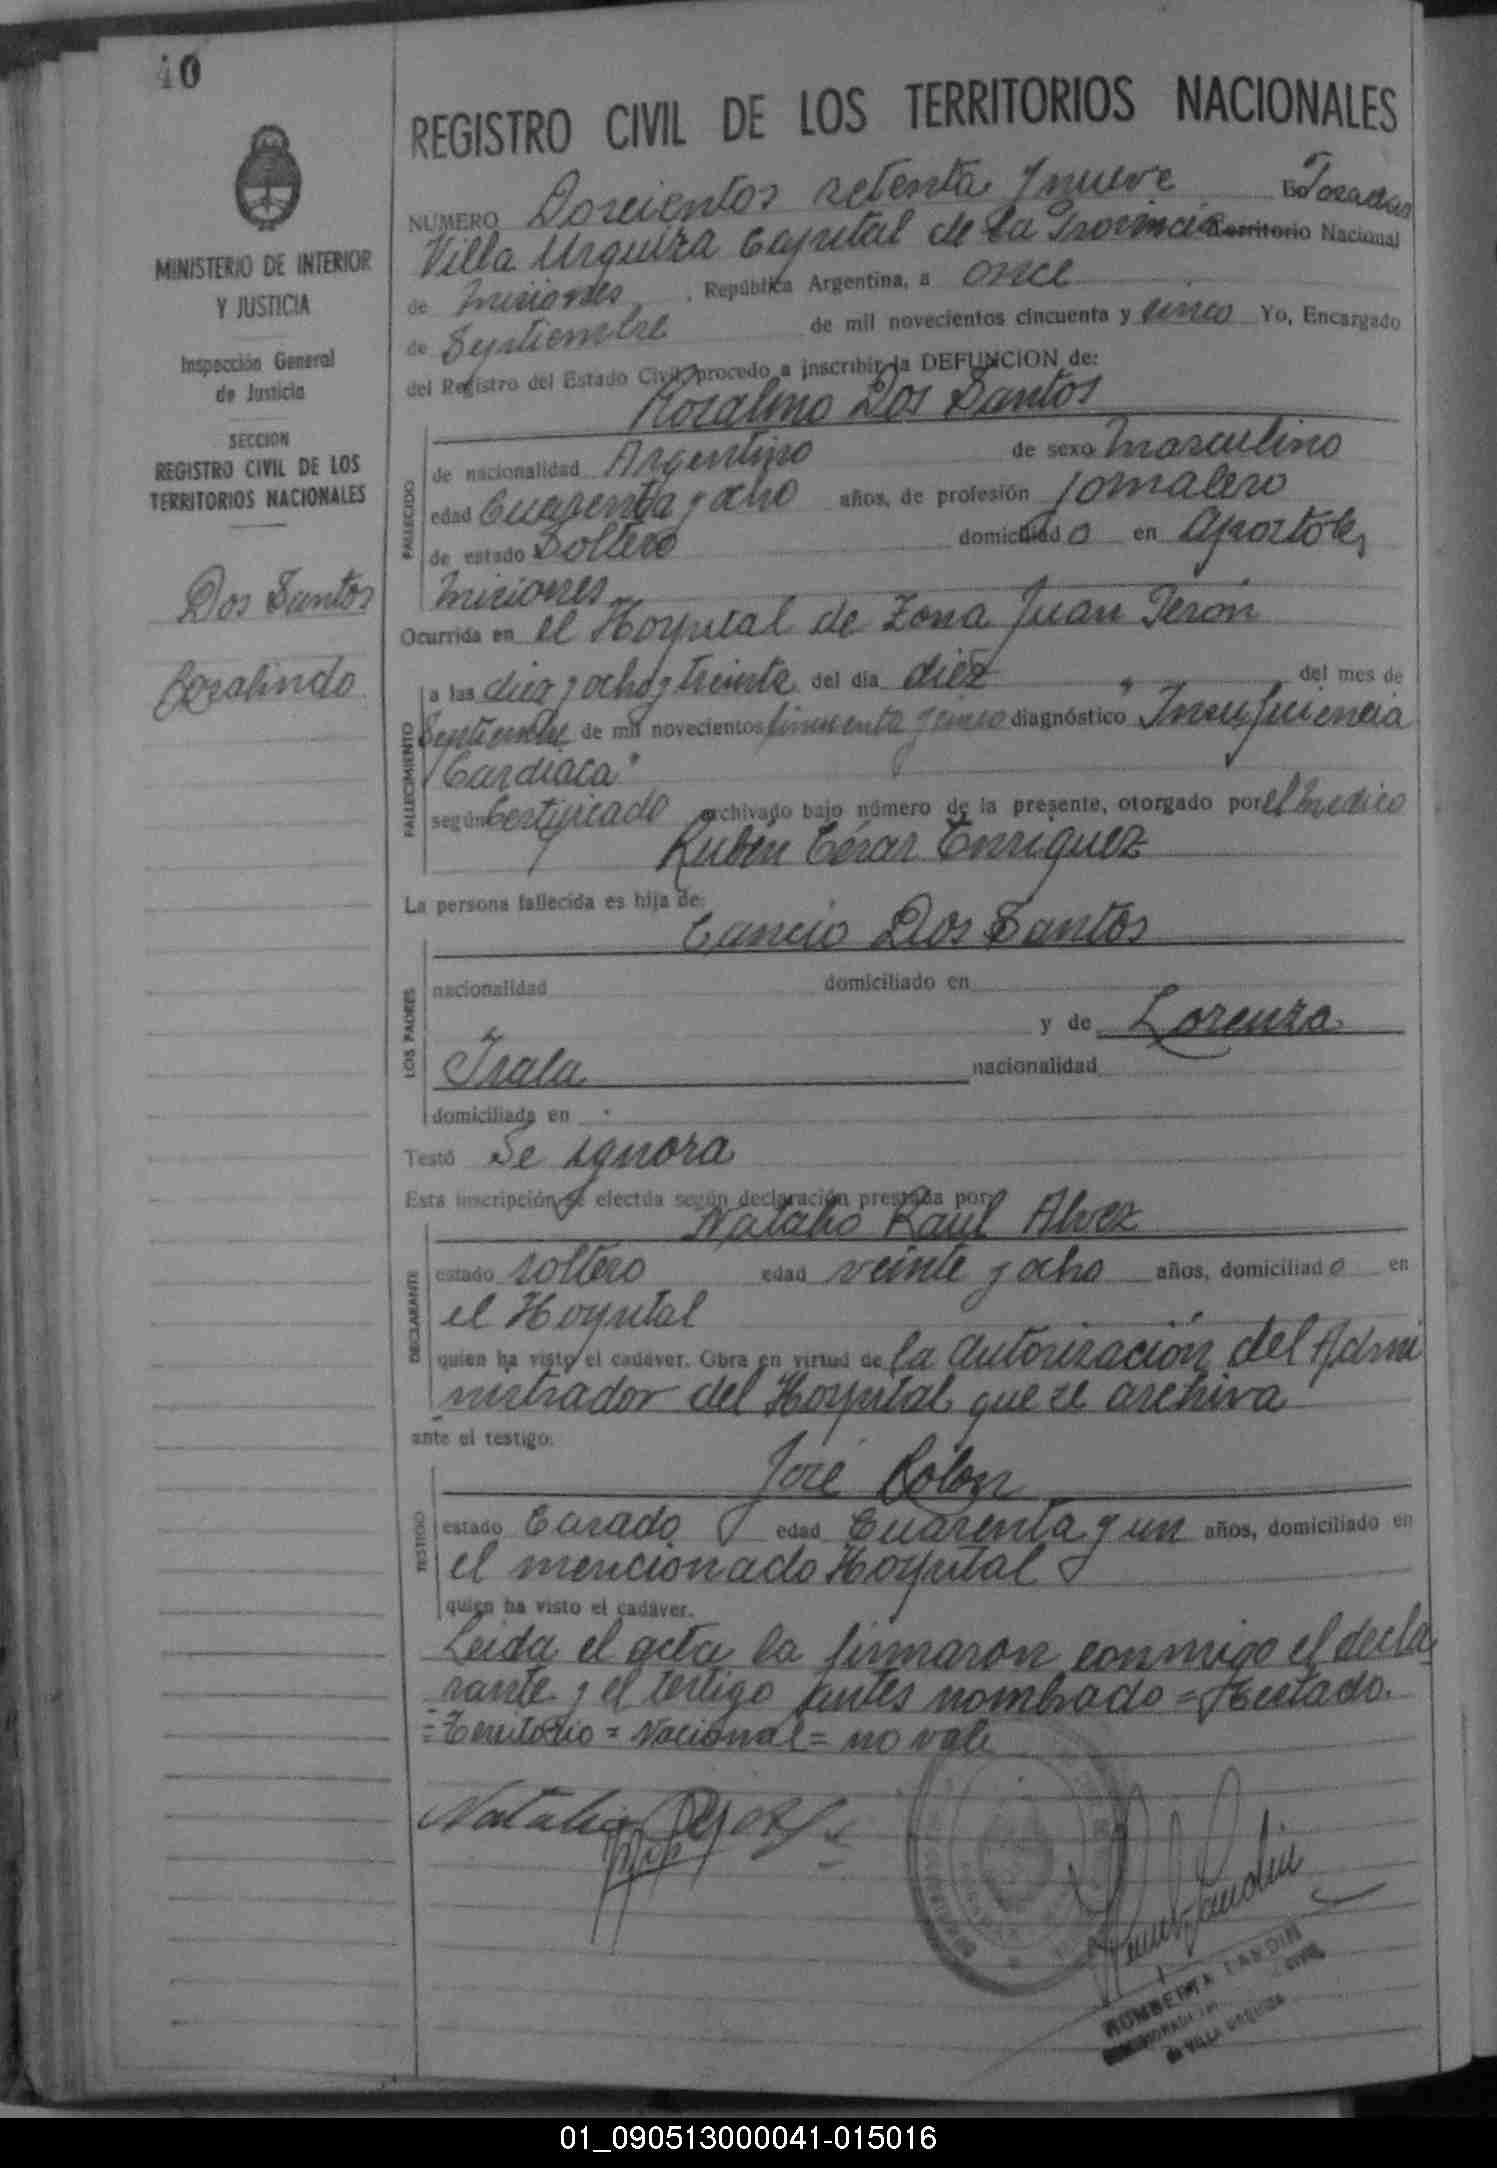 40
MINISTERIO DE INTERIOR
Y JUSTICIA
Inspección General
de Justicia
SECCION
REGISTRO CIVIL DE LOS
TERRITORIOS NACIONALES
Dos Santos
Rozalindo
REGISTRO CIVIL DE LOS TERRITORIOS NACIONALES
NUMERO Doscientos setenta y nueve En Posadas
Villa Urquiza Capital de la Provincia Territorio Nacional
de Misiones, República Argentina, a once
de Septiembre de mil novecientos cincuenta y cinco Yo, Encargado
del Registro del Estado Civil, procedo a inscribir la DEFUNCION de:
Rozalino Dos Santos
FALLECIDO
de nacionalidad Argentino de sexo Masculino
edad Cuarenta y ocho años, de profesión Jornalero
de estado Soltero domiciliado en Apostoles
Misiones
Ocurrida en el Hospital de Zona Juan Perón
FALLECIMIENTO
a las diez y ocho y treinta del día diez del mes de
Septiembre de mil novecientos cincuenta y cinco diagnóstico "Insuficiencia
Cardiaca"
según Certificado archivado bajo número de la presente, otorgado por el Medico
Rubén César Enriquez
La persona fallecida es hija de:
LOS PADRES
Cancio Dos Santos
nacionalidad domiciliado en
y de Lorenza
Irala nacionalidad
domiciliada en
Testó Se ignora
Esta inscripción se efectúa según declaración prestada por:
DECLARANTE
Natalio Raul Alvez
estado soltero edad veinte y ocho años, domiciliado en
el Hospital
quien ha visto el cadáver. Obra en virtud de la autorización del Admi
nistrador del Hospital que se archiva
ante el testigo:
TESTIGO
José Rolon
estado Casado edad Cuarenta y un años, domiciliado en
el mencionado Hospital
quien ha visto el cadáver.
Leida el acta la firmaron conmigo el decla
rante y el testigo antes nombrado = Testado.
= Territorio = Nacional = no vale
Natalio
LANDIN
VILLA URQUIZA
01_090513000041-015016